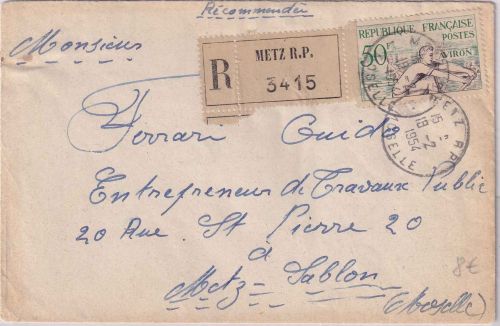 Recommandée
Monsieur
R
METZ R.P.
3415
REPUBLIQUE FRANÇAISE
50F
POSTES
AVIRON
METZ R.P.
15 H
19 -2
1954
MOSELLE
Ferrari Guido
Entrepreneur de Travaux Public
20 Rue St Pierre 20
à
Metz-Sablon
(Moselle)
8€